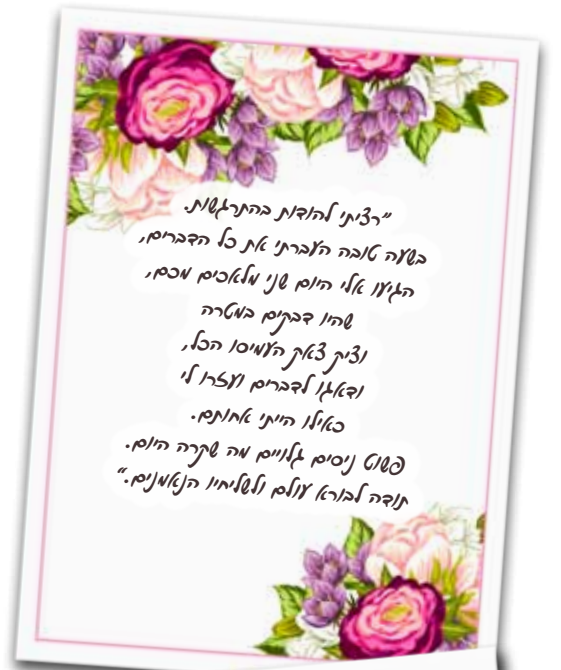 "רציתי להודות בהתרגשות.
בשעה טובה העברתי את כל הדברים,
הגיעו אלי היום שני מלאכים מכם,
שהיו דבקים במטרה
וציק צאק העמיסו הכל,
ודאגו לדברים ועזרו לי
כאילו הייתי אחותם.
פשוט ניסים גלויים מה שקרה היום.
תודה לבורא עולם ולשליחיו הנאמנים."